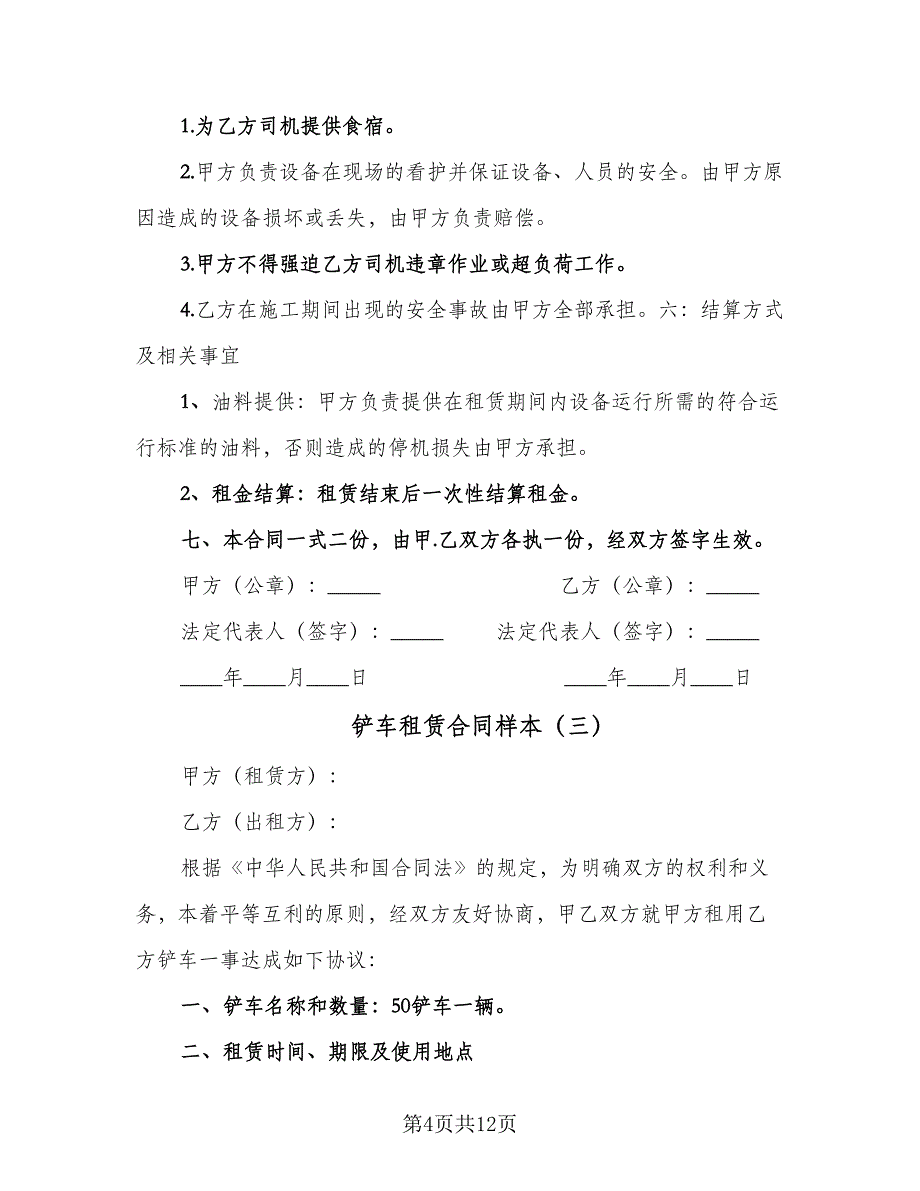 1.为乙方司机提供食宿。
2.甲方负责设备在现场的看护并保证设备、人员的安全。由甲方原
因造成的设备损坏或丢失，由甲方负责赔偿。
3.甲方不得强迫乙方司机违章作业或超负荷工作。
4.乙方在施工期间出现的安全事故由甲方全部承担。六：结算方式
及相关事宜
1、油料提供：甲方负责提供在租赁期间内设备运行所需的符合运
行标准的油料，否则造成的停机损失由甲方承担。
2、租金结算：租赁结束后一次性结算租金。
七、本合同一式二份，由甲.乙双方各执一份，经双方签字生效。
甲方（公章）：_____ 乙方（公章）：_____
法定代表人（签字）：_____ 法定代表人（签字）：_____
____年____月____日 ____年____月____日
铲车租赁合同样本（三）
甲方（租赁方）：
乙方（出租方）：
根据《中华人民共和国合同法》的规定，为明确双方的权利和义
务，本着平等互利的原则，经双方友好协商，甲乙双方就甲方租用乙
方铲车一事达成如下协议：
一、铲车名称和数量：50铲车一辆。
二、租赁时间、期限及使用地点
第4页共12页